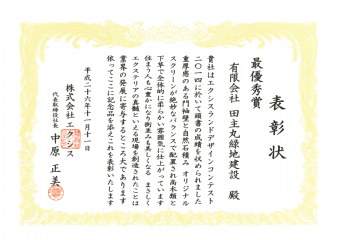 表彰状
最優秀賞
有限会社 田主丸緑地建設 殿
貴社はエクスランドデザインコンテスト
二〇一四に於いて頭書の成績を収められました
重厚感のある門袖壁と自然石積み オリジナル
スクリーンが絶妙なバランスで配置され高木類と
下草で全体的に柔らかい雰囲気に仕上がっています
住まう人も心豊かになり街並みも美しくなる まさしく
エクステリアの真髄といえる現場を創造されたことは
業界の発展に寄与するところ大であります
依ってここに記念品を添えこれを表彰いたします
平成二十六年十一月十一日
株式会社エクシス
代表取締役社長 中原 正美